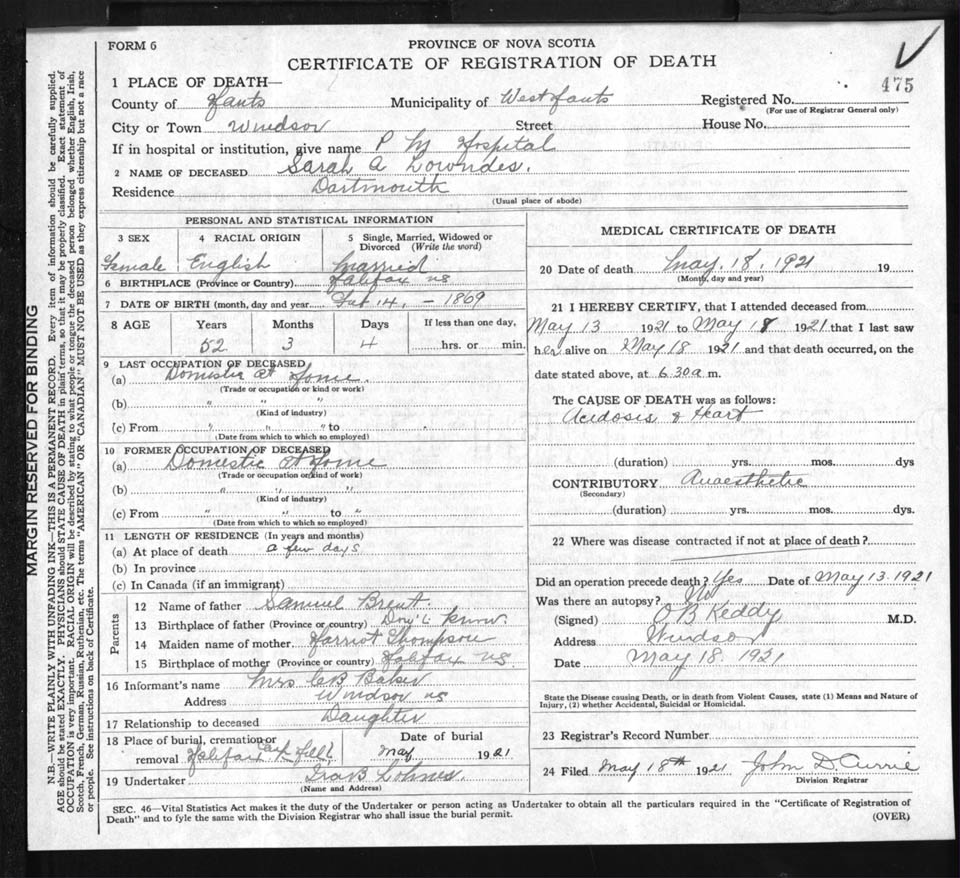 FORM 6
PROVINCE OF NOVA SCOTIA
CERTIFICATE OF REGISTRATION OF DEATH
475
1 PLACE OF DEATH—
County of Hants Municipality of West Hants Registered No.
(For use of Registrar General only)
City or Town Windsor Street House No.
If in hospital or institution, give name P M Hospital
2 NAME OF DECEASED Sarah A Lowndes.
Residence Dartmouth
(Usual place of abode)
PERSONAL AND STATISTICAL INFORMATION
3 SEX 4 RACIAL ORIGIN 5 Single, Married, Widowed or Divorced (Write the word)
Female English Married
6 BIRTHPLACE (Province or Country) Halifax NS
7 DATE OF BIRTH (month, day and year) Feb 14, - 1869
8 AGE Years Months Days If less than one day,
52 3 4 hrs. or min.
9 LAST OCCUPATION OF DECEASED
(a) Domestic at Home.
(Trade or occupation or kind or work)
(b) " " "
(Kind of industry)
(c) From " " " to "
(Date from which to which so employed)
10 FORMER OCCUPATION OF DECEASED
(a) Domestic at Home
(Trade or occupation or kind of work)
(b) " " "
(Kind of industry)
(c) From " " to "
(Date from which to which so employed)
11 LENGTH OF RESIDENCE (In years and months)
(a) At place of death a few days
(b) In province
(c) In Canada (if an immigrant)
Parents
12 Name of father Samuel Brent.
13 Birthplace of father (Province or country) Don't know.
14 Maiden name of mother Harriet Thompson
15 Birthplace of mother (Province or country) Halifax NS
16 Informant's name Mrs CB Baker
Address Windsor NS
17 Relationship to deceased Daughter
18 Place of burial, cremation or removal Halifax Date of burial May 1921
19 Undertaker Lohnes.
(Name and Address)
MEDICAL CERTIFICATE OF DEATH
20 Date of death May. 18. 1921 19
(Month, day and year)
21 I HEREBY CERTIFY, that I attended deceased from
May 13 1921 to May 18 1921 that I last saw
her alive on May 18 1921 and that death occurred, on the
date stated above, at 6.30 a. m.
The CAUSE OF DEATH was as follows:
Acidosis & Heart
(duration) yrs. mos. dys
CONTRIBUTORY Anaesthetic
(Secondary)
(duration) yrs. mos. dys.
22 Where was disease contracted if not at place of death?
Did an operation precede death? Yes Date of May 13. 1921
Was there an autopsy? No
(Signed) O B Keddy M.D.
Address Windsor
Date May 18. 1921
State the Disease causing Death, or in death from Violent Causes, state (1) Means and Nature of
Injury, (2) whether Accidental, Suicidal or Homicidal.
23 Registrar's Record Number
24 Filed May 18th 1921 John D. Currie
Division Registrar
SEC. 46—Vital Statistics Act makes it the duty of the Undertaker or person acting as Undertaker to obtain all the particulars required in the "Certificate of Registration of
Death" and to fyle the same with the Division Registrar who shall issue the burial permit.
(OVER)
MARGIN RESERVED FOR BINDING
N.B.—WRITE PLAINLY WITH UNFADING INK—THIS IS A PERMANENT RECORD. Every item of information should be carefully supplied.
AGE should be stated EXACTLY. PHYSICIANS should STATE CAUSE OF DEATH in plain terms, so that it may be properly classified. Exact statement of
OCCUPATION is very important. RACIAL ORIGIN will be described by stating to what people or tongue the deceased person belonged whether English, Irish,
Scotch, French, German, Russian, Ruthenian, etc. The terms "AMERICAN" OR "CANADIAN" MUST NOT BE USED as they express citizenship but not a race
or people. See instructions on back of Certificate.